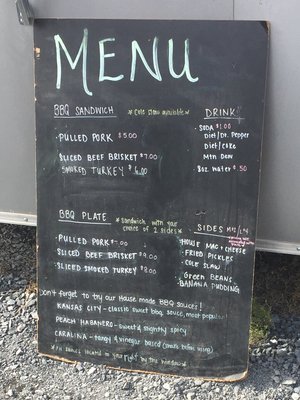 MENU
BBQ SANDWICH
*Cole slaw available*
· PULLED PORK $5.00
· SLICED BEEF BRISKET $7.00
SMOKED TURKEY $6.00
DRINK
· SODA $1.00
Diet/Dr. Pepper
Diet/Coke
Mtn Dew
8oz water $.50
BBQ PLATE
*Sandwich with your choice of 2 sides*
· PULLED PORK
· SLICED BEEF BRISKET $9.00
· SLICED SMOKED TURKEY $8.00
SIDES
· HOUSE MAC + CHEESE
· FRIED PICKLES
· COLE SLAW
· GREEN BEANS
· BANANA PUDDING
Don't forget to try our House made BBQ sauces!
KANSAS CITY - classic sweet bbq sauce, most popular!
PEACH HABANERO - sweet & slightly spicy
CAROLINA - tangy & vinegar based
your right by the window